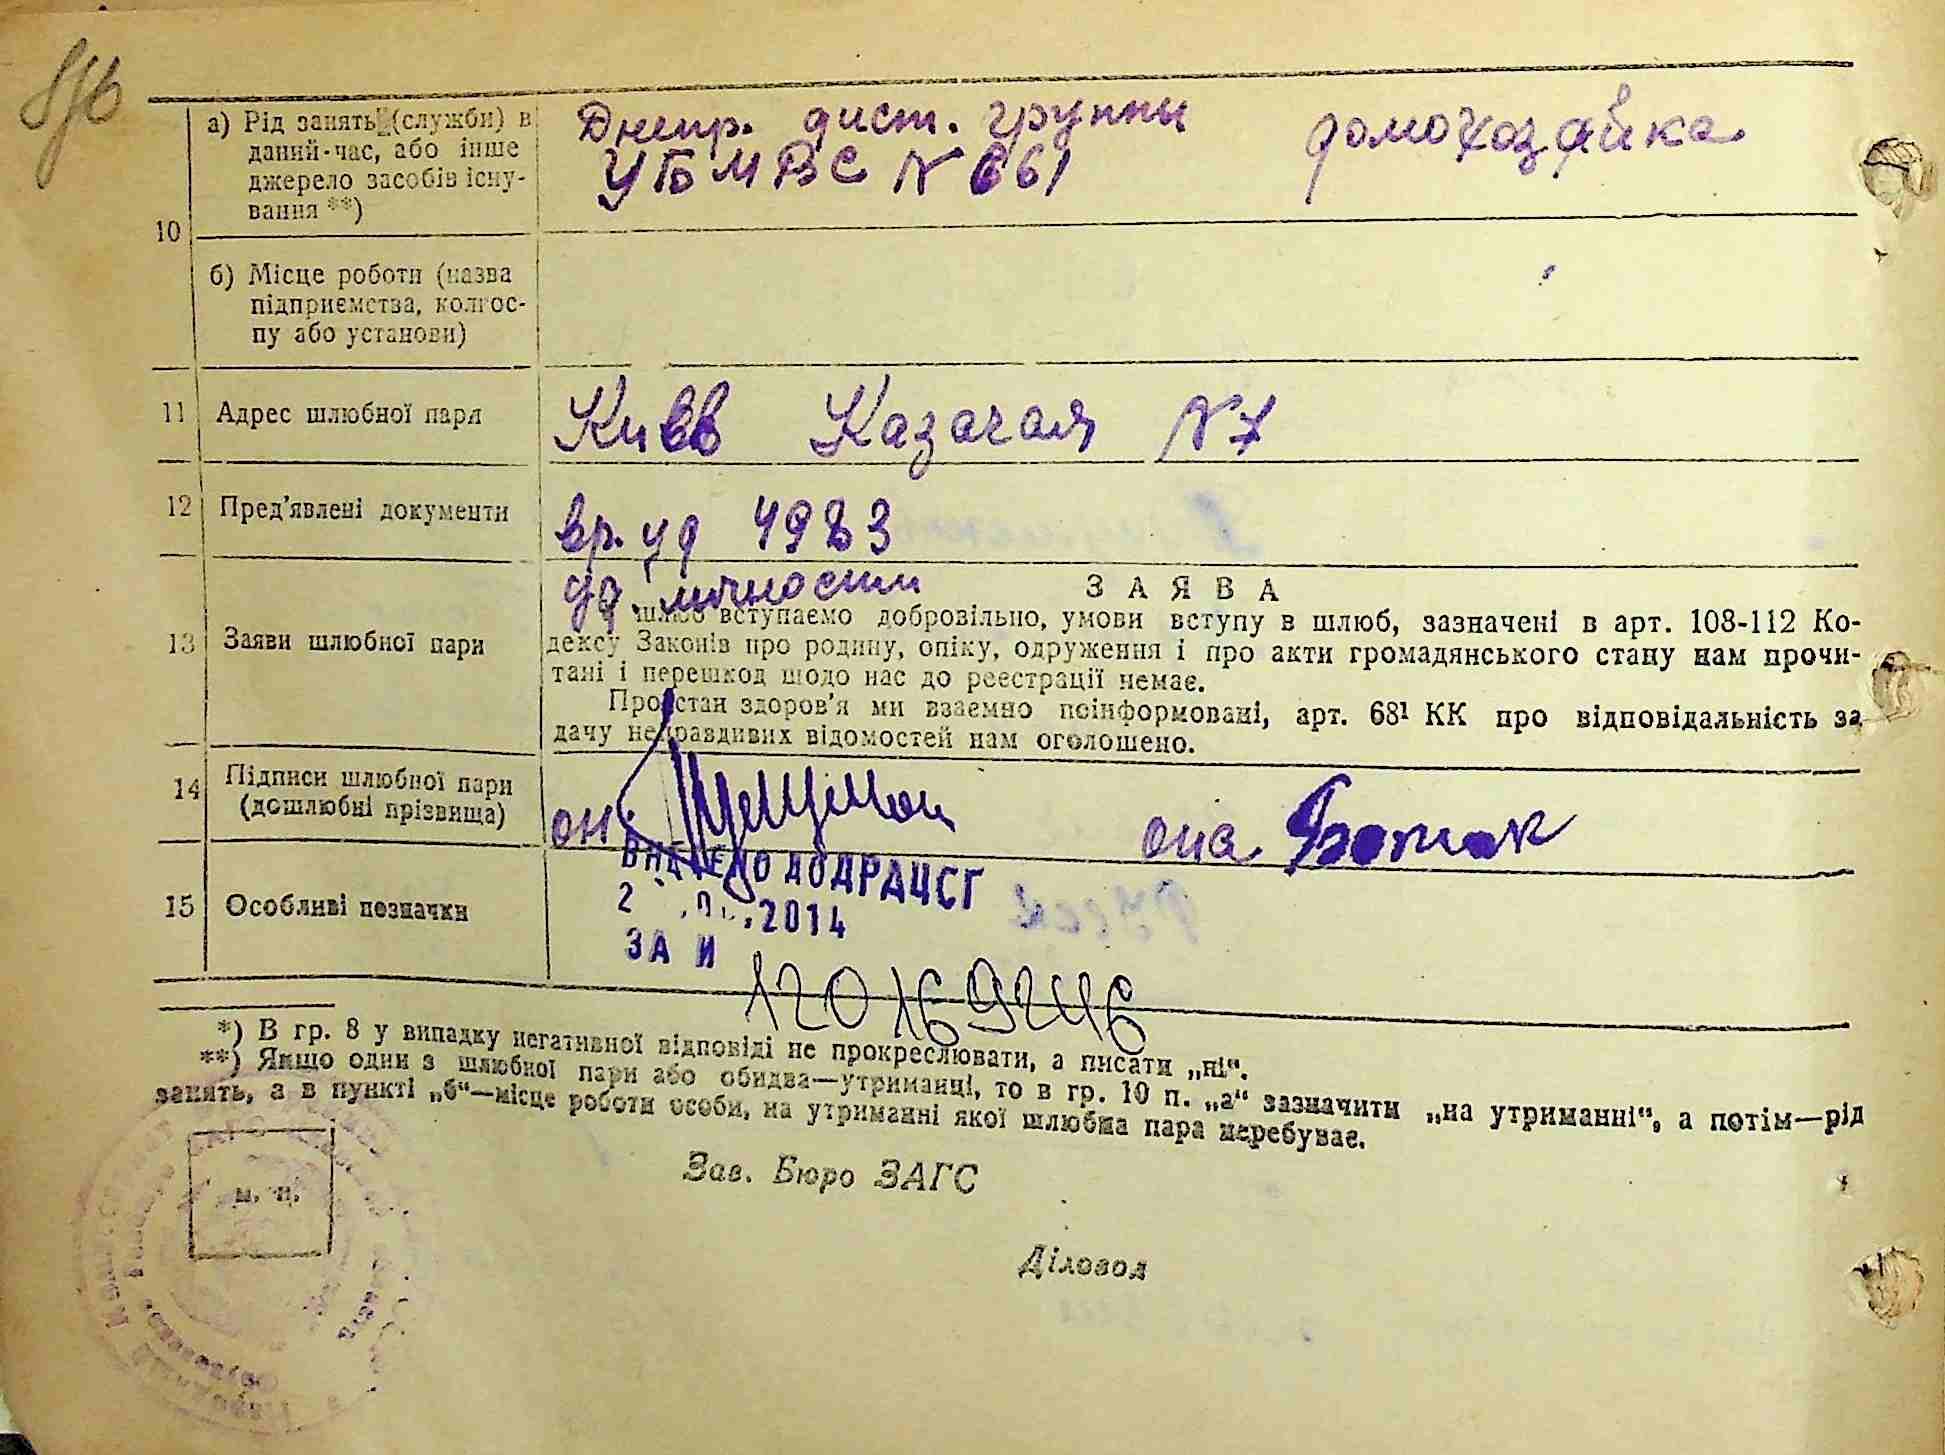 10
а) Рід занять (служби) в
даний час, або інше
джерело засобів існу-
вання **)
Днепр. дист. группы домохозяйка
УБМВС N 661
б) Місце роботи (назва
підприємства, колгос-
пу або установи)
11 Адрес шлюбної пари Киев Казачая N 7
12 Пред'явлені документи вр. уд 4983
уд. личности
ЗАЯВА
13 Заяви шлюбної пари
шлюб вступаємо добровільно, умови вступу в шлюб, зазначені в арт. 108-112 Ко-
дексу Законів про родину, опіку, одруження і про акти громадянського стану нам прочи-
тані і перешкод щодо нас до реєстрації немає.
Про стан здоров'я ми взаємно поінформовані, арт. 68¹ КК про відповідальність за
дачу неправдивих відомостей нам оголошено.
14 Підписи шлюбної пари
(дошлюбні прізвища)
он она
15 Особливі позначки
ВНЕСЕНО ДО ДРАЦСГ
2014
ЗА N
120169246
*) В гр. 8 у випадку негативної відповіді не прокреслювати, а писати „ні“.
**) Якщо один з шлюбної пари або обидва—утриманці, то в гр. 10 п. „а“ зазначити „на утриманні“, а потім—рід
занять, а в пункті „б“—місце роботи особи, на утриманні якої шлюбна пара перебуває.
м. п.
Зав. Бюро ЗАГС
Діловод